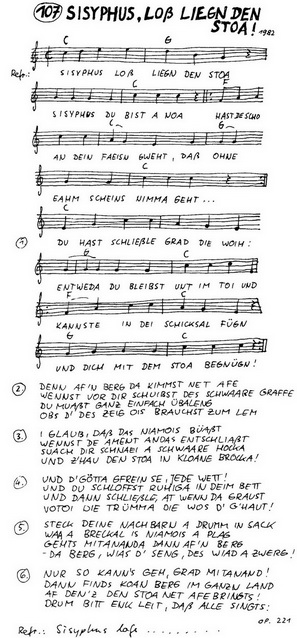 107 SISYPHUS, LOß LIEGN DEN
STOA! 1982
C G
Refr.: SISYPHUS LOß LIEGN DEN STOA
C F
SISYPHUS DU BIST A NOA HAST DE SCHO
C G
AN DEIN FAEISN GWEHT, DAß OHNE
C
EAHM SCHEINS NIMMA GEHT...
C
1 DU HAST SCHLIEßLE GRAD DIE WOIH:
G C
ENTWEDA DU BLEIBST UNT IM TOI UND
F C
KANNSTE IN DEI SCHICKSAL FÜGN
G C
UND DICH MIT DEM STOA BEGNÜGN!
2 DENN AF'N BERG DA KIMMST NET AFE
WENNST VOR DIR SCHUIBST DES SCHWAARE GRAFFE
DU MUAßT GANZ EINFACH ÜBALENG
OBS D' DES ZEIG OIS BRAUCHST ZUM LEM
3. I GLAUB, DAß DAS NIAMOIS BÜAßT
WENNST DE AMENT ANDAS ENTSCHLIAßT
SUACH DIR SCHNAEI A SCHWAARE HOCKA
UND Z'HAU DEN STOA IN KLOANE BROCKA!
4. UND D'GÖTTA GFREIN SE, JEDE WETT!
UND DU SCHLOFST RUHIGA IN DEIM BETT
UND DANN SCHLIEßLE, AT WENN DA GRAUST
VOTOI DIE TRÜMMA DIE WOS D' G'HAUT!
5 STECK DEINE NACHBARN A DRUMM IN SACK
WAA A BRECKAL IS NIAMOIS A PLAG
GEHTS MITANANDA DANN AF'N BERG
-DA BERG, WIAS D' SENG, DES WIAD A ZWERG!
6 NUR SO KANN'S GEH, GRAD MITANAND!
DANN FINDS KOAN BERG IM GANZN LAND
AF DEN'Z DEN STOA NET AFE BRINGTS!
DRUM BITT ENK LEIT, DAß ALLE SINGTS:
OP. 221
Refr.: Sisyphus loß .........